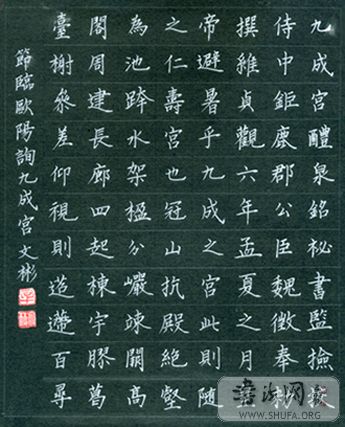 九成宮醴泉銘祕書監撿挍
侍中鉅鹿郡公臣魏徵奉勑
撰維貞觀六年孟夏之月皇
帝避暑乎九成之宮此則隨
之仁壽宮也冠山抗殿絕壑
為池跨水架楹分巖竦闕高
閣周建長廊四起棟宇膠葛
臺榭參差仰視則迢遰百尋
節臨歐陽詢九成宮 文彬
WWW.SHUFA.ORG